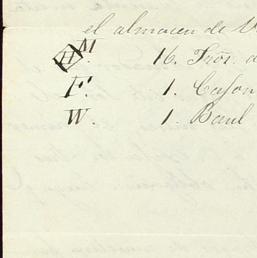 el almacen de
H M. 16. Tros.
F. 1. Cajon
W. 1. Baul